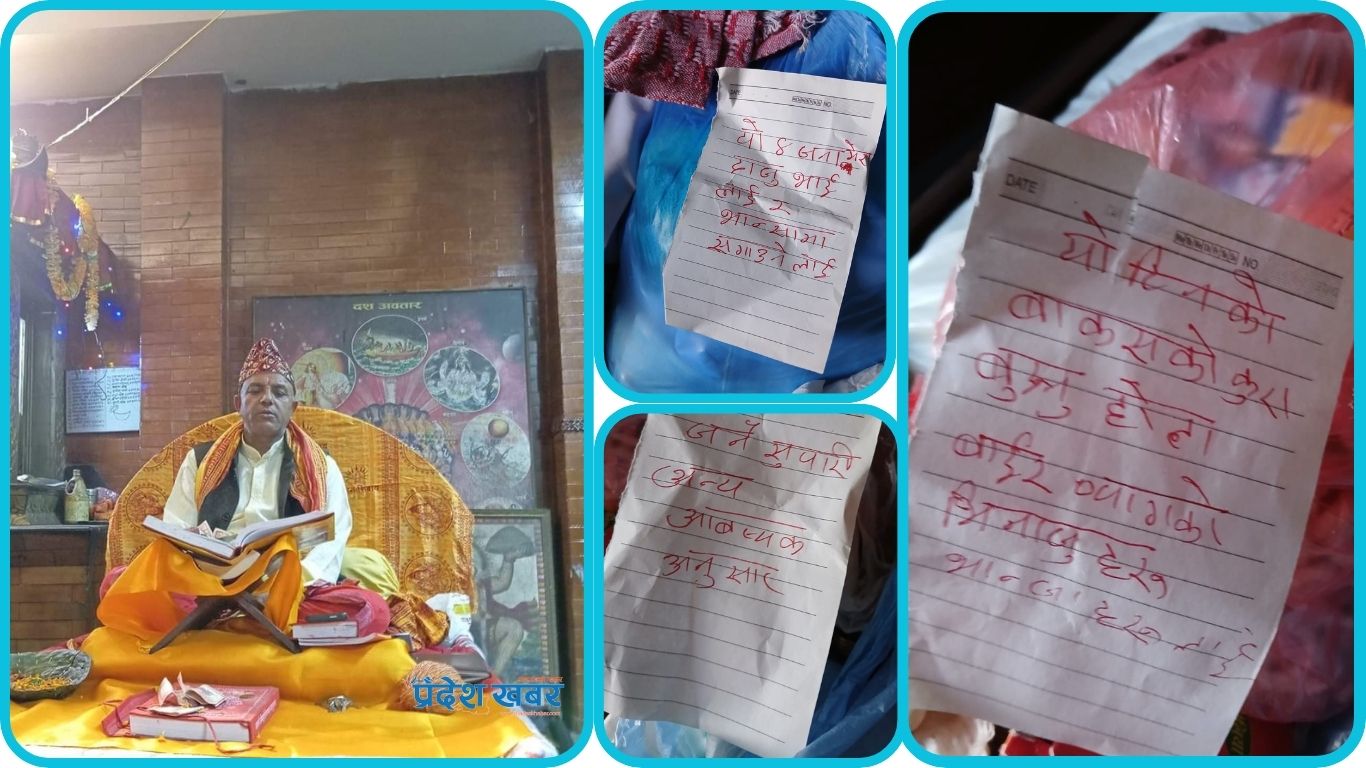 दश अवतार
प्रदेश खबर
DATE NO
यो ४ जना मेरा
दाजु भाई
लाई र
भान्सामा
सगाउने लाई
जने सुपारी
अन्य
आबष्यक
अनुसार
DATE NO
यो टिनको
बाकसको कुरा
बुझ्नु होला
बाईर ब्यागको
भिनाजु हरु
भान्जा हरु लाई